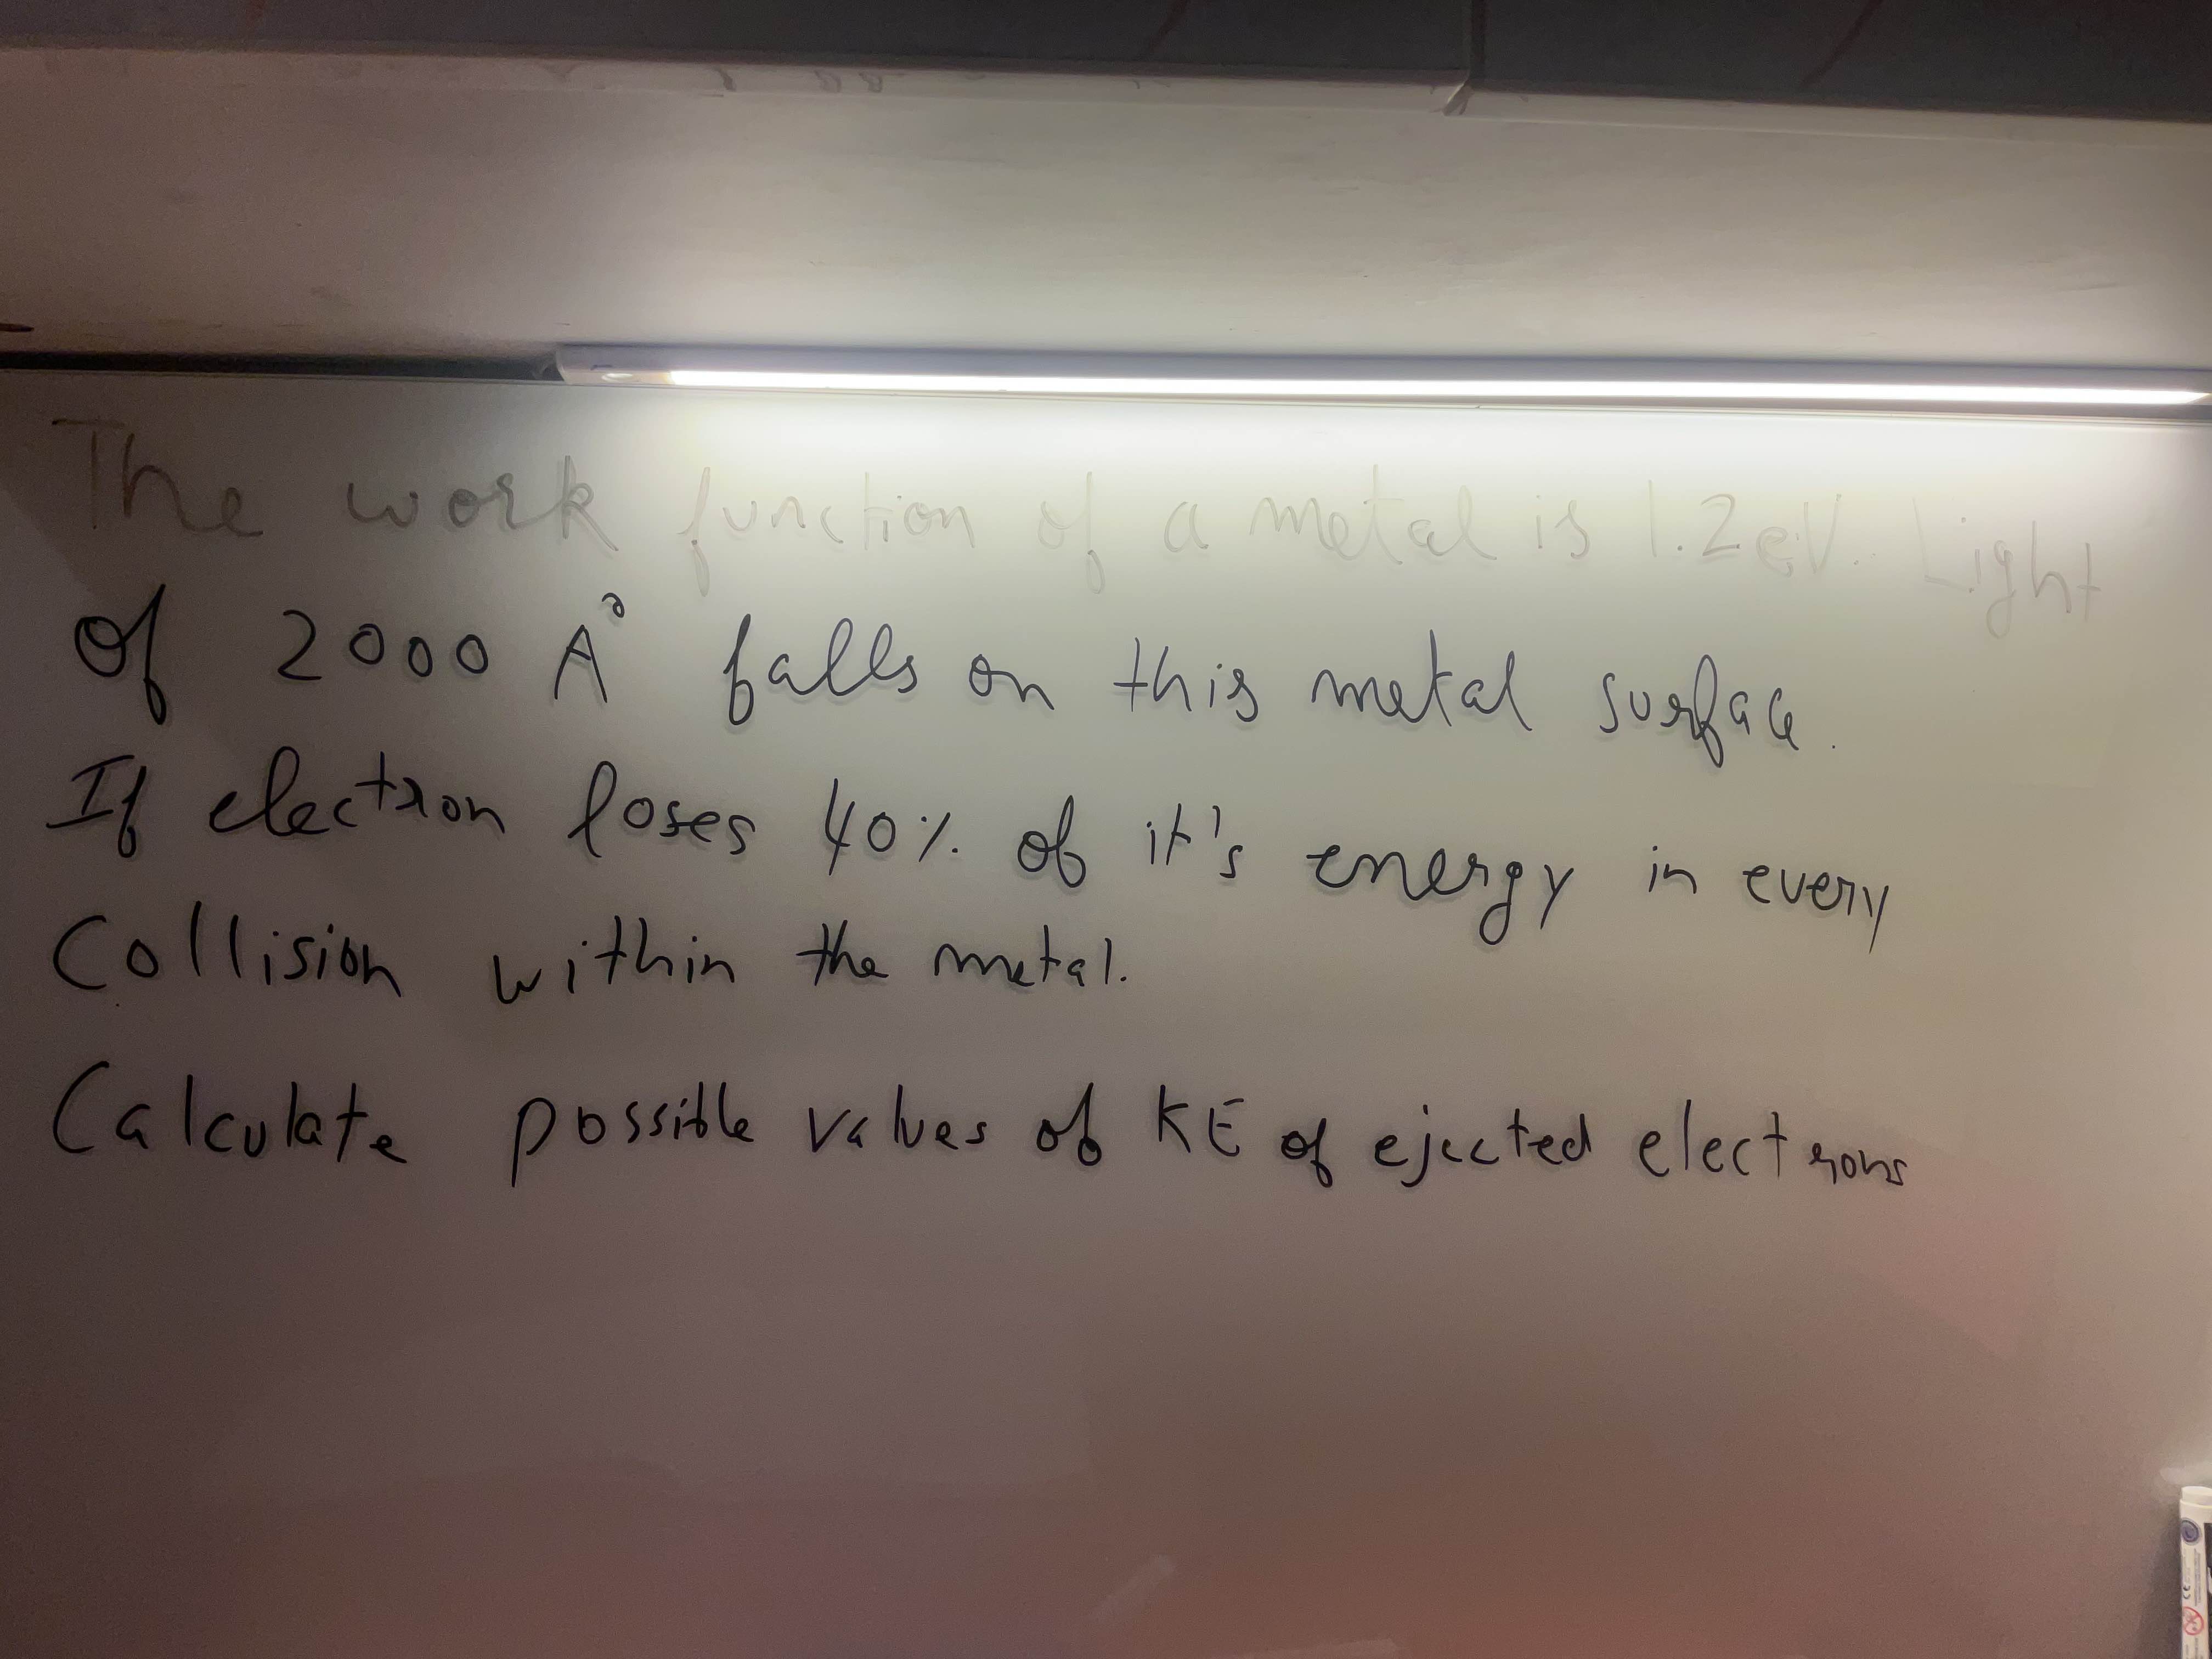 The work function of a metal is 1.2 eV. Light
of 2000 A° falls on this metal surface.
If electron loses 40% of it's energy in every
Collision within the metal.
Calculate possible values of KE of ejected electrons